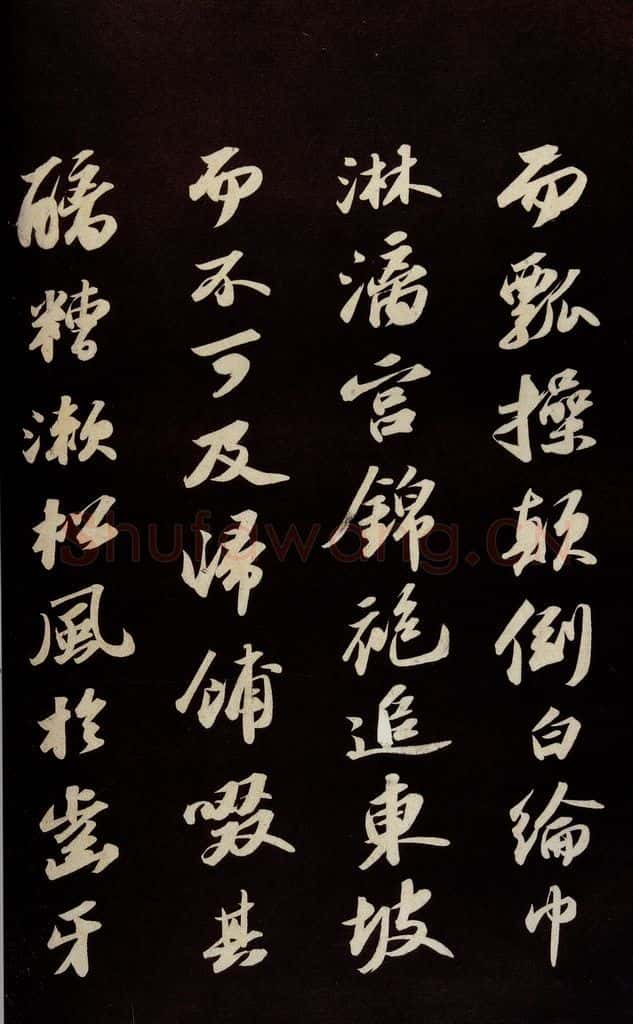 而瓢操顛倒白綸巾
淋漓宮錦袍追東坡
而不可及歸餔啜其
醨糟漱松風於齒牙
Shufawang.CN